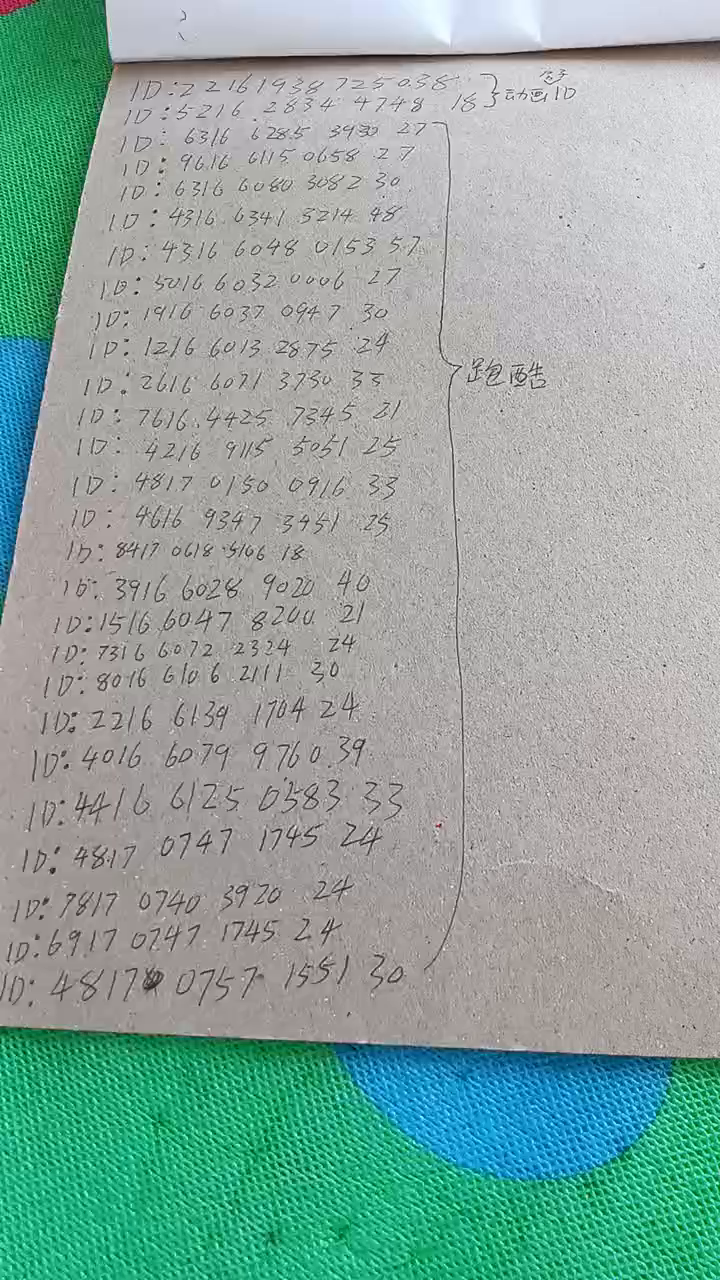 ID:22161938725038
ID:5216 2834 4748 18 动画ID
ID: 6316 6285 3930 27
ID: 9616 6115 0658 27
ID: 6316 6080 3082 30
ID: 4316 6341 3214 48
ID: 4316 6048 0153 57
ID: 5016 6032 0006 27
ID: 1916 6037 0947 30
ID: 1216 6013 2875 24
跑酷
ID: 2616 6071 3730 33
ID: 7616 4425 7345 21
ID: 4216 9115 5051 25
ID: 4817 0150 0916 33
ID: 4616 9347 3951 25
ID: 8417 0618 5106 18
ID: 3916 6028 9020 40
ID:1516 6047 8200 21
ID: 7316 6072 2324 24
ID: 8016 6106 2111 30
ID: 2216 6139 1704 24
ID: 4016 6079 9760 39
ID: 4416 6125 0583 33
ID: 4817 0747 1745 24
ID: 7817 0740 3920 24
ID: 6917 0747 1745 24
ID: 4817 0757 1551 30